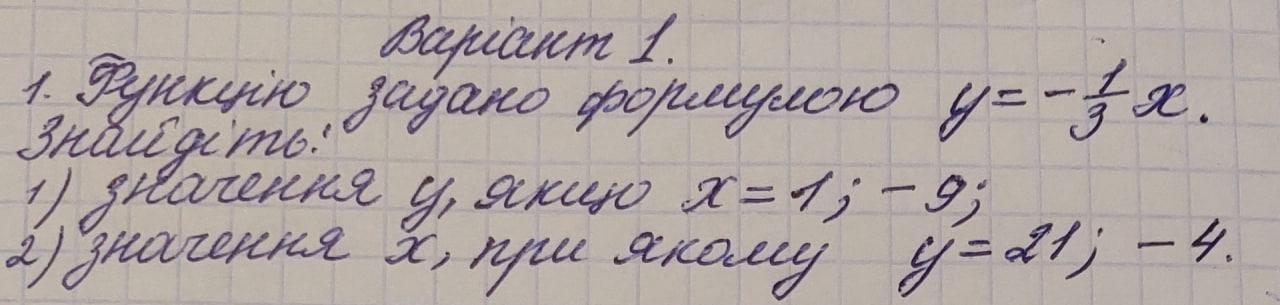 Варіант 1.
1. Функцію задано формулою y = -1/3 x.
Знайдіть:
1) значення y, якщо x = 1; -9;
2) значення x, при якому y = 21; -4.